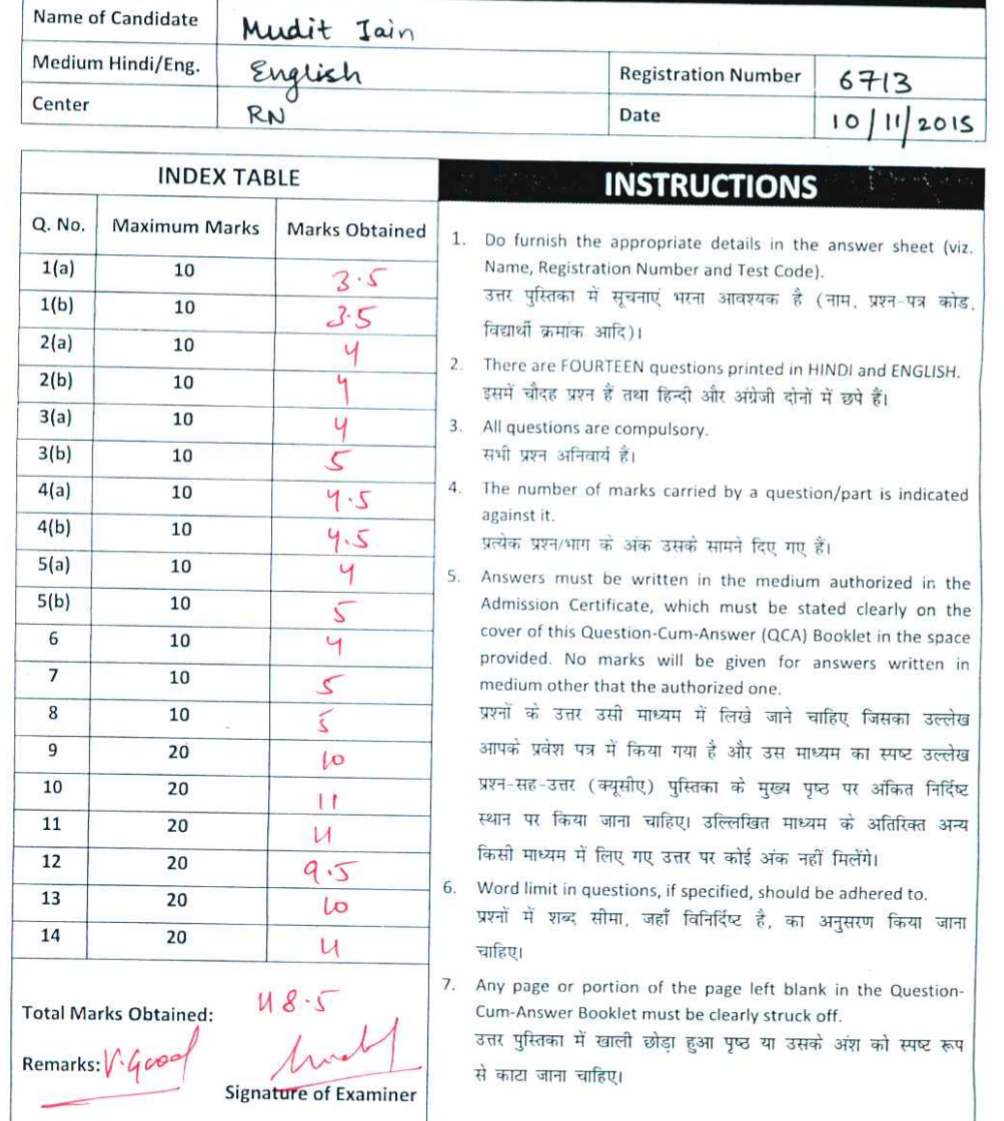 Name of Candidate Mudit Jain
Medium Hindi/Eng. English Registration Number 6713
Center RN Date 10/11/2015
INDEX TABLE
Q. No. Maximum Marks Marks Obtained
1(a) 10 3.5
1(b) 10 3.5
2(a) 10 4
2(b) 10 4
3(a) 10 4
3(b) 10 5
4(a) 10 4.5
4(b) 10 4.5
5(a) 10 4
5(b) 10 5
6 10 4
7 10 5
8 10 5
9 20 10
10 20 11
11 20 11
12 20 9.5
13 20 10
14 20 11
Total Marks Obtained: 118.5
Remarks: V. Good
Signature of Examiner
INSTRUCTIONS
1. Do furnish the appropriate details in the answer sheet (viz.
Name, Registration Number and Test Code).
उत्तर पुस्तिका में सूचनाएं भरना आवश्यक है (नाम, प्रश्न-पत्र कोड,
विद्यार्थी क्रमांक आदि)।
2. There are FOURTEEN questions printed in HINDI and ENGLISH.
इसमें चौदह प्रश्न हैं तथा हिन्दी और अंग्रेजी दोनों में छपे हैं।
3. All questions are compulsory.
सभी प्रश्न अनिवार्य है।
4. The number of marks carried by a question/part is indicated
against it.
प्रत्येक प्रश्न/भाग के अंक उसके सामने दिए गए हैं।
5. Answers must be written in the medium authorized in the
Admission Certificate, which must be stated clearly on the
cover of this Question-Cum-Answer (QCA) Booklet in the space
provided. No marks will be given for answers written in
medium other that the authorized one.
प्रश्नों के उत्तर उसी माध्यम में लिखे जाने चाहिए जिसका उल्लेख
आपके प्रवेश पत्र में किया गया है और उस माध्यम का स्पष्ट उल्लेख
प्रश्न-सह-उत्तर (क्यूसीए) पुस्तिका के मुख्य पृष्ठ पर अंकित निर्दिष्ट
स्थान पर किया जाना चाहिए। उल्लिखित माध्यम के अतिरिक्त अन्य
किसी माध्यम में लिए गए उत्तर पर कोई अंक नहीं मिलेंगे।
6. Word limit in questions, if specified, should be adhered to.
प्रश्नों में शब्द सीमा, जहाँ विनिर्दिष्ट है, का अनुसरण किया जाना
चाहिए।
7. Any page or portion of the page left blank in the Question-
Cum-Answer Booklet must be clearly struck off.
उत्तर पुस्तिका में खाली छोड़ा हुआ पृष्ठ या उसके अंश को स्पष्ट रूप
से काटा जाना चाहिए।